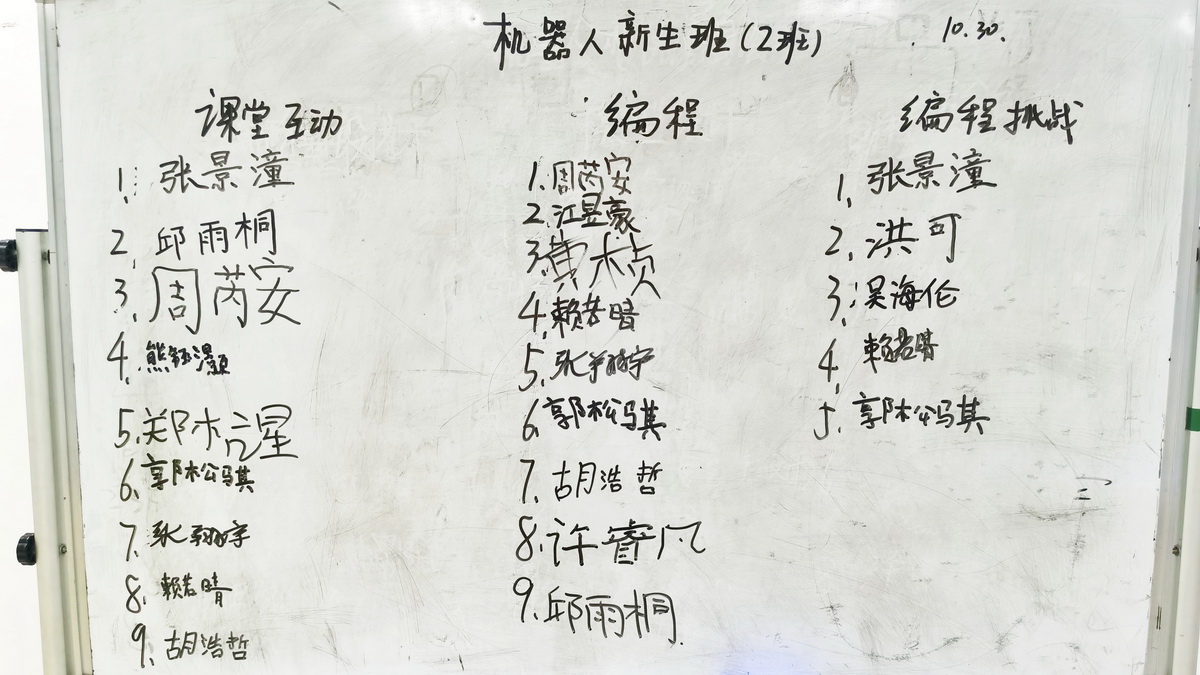 机器人新生班(2班)
10.30.
课堂互动
1. 张景潼
2. 邱雨桐
3. 周芮安
4. 熊钰灏
5. 郑杺星
6. 郭松骐
7. 张翔宇
8. 赖若晴
9. 胡浩哲
编程
1. 周芮安
2. 江昱豪
3. 黄桢
4. 赖若晴
5. 张翔宇
6. 郭松骐
7. 胡浩哲
8. 许睿凡
9. 邱雨桐
编程挑战
1. 张景潼
2. 洪可
3. 吴海伦
4. 赖若晴
5. 郭松骐